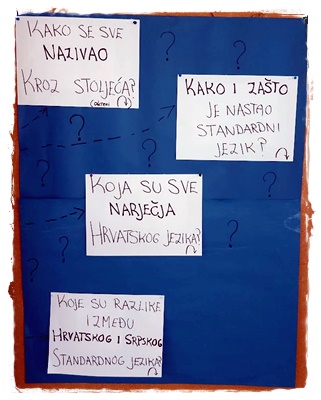 KAKO SE SVE
NAZIVAO
KROZ STOLJEĆA?
(OKRENI)
KAKO I ZAŠTO
JE NASTAO
STANDARDNI
JEZIK?
KOJA SU SVE
NARJEČJA
HRVATSKOG JEZIKA?
KOJE SU RAZLIKE
IZMEĐU
HRVATSKOG I SRPSKOG
STANDARDNOG JEZIKA?